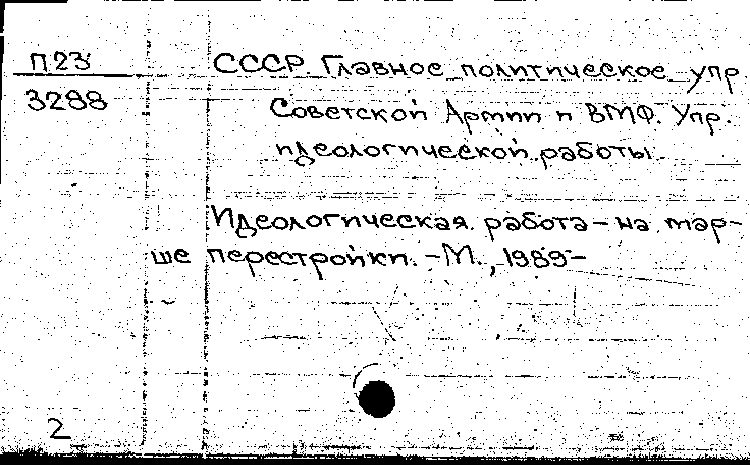 П23
3288
СССР Главное политическое упр.
Советской Армии и ВМФ. Упр.
идеологической работы.
Идеологическая работа - на мар-
ше перестройки. - М., 1989 -
2